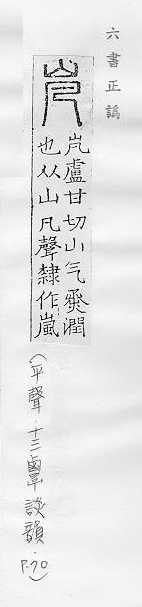 六書正譌
盧甘切山气烝潤
也从山凡聲隸作嵐
(平聲.十三覃談韻.P.70)